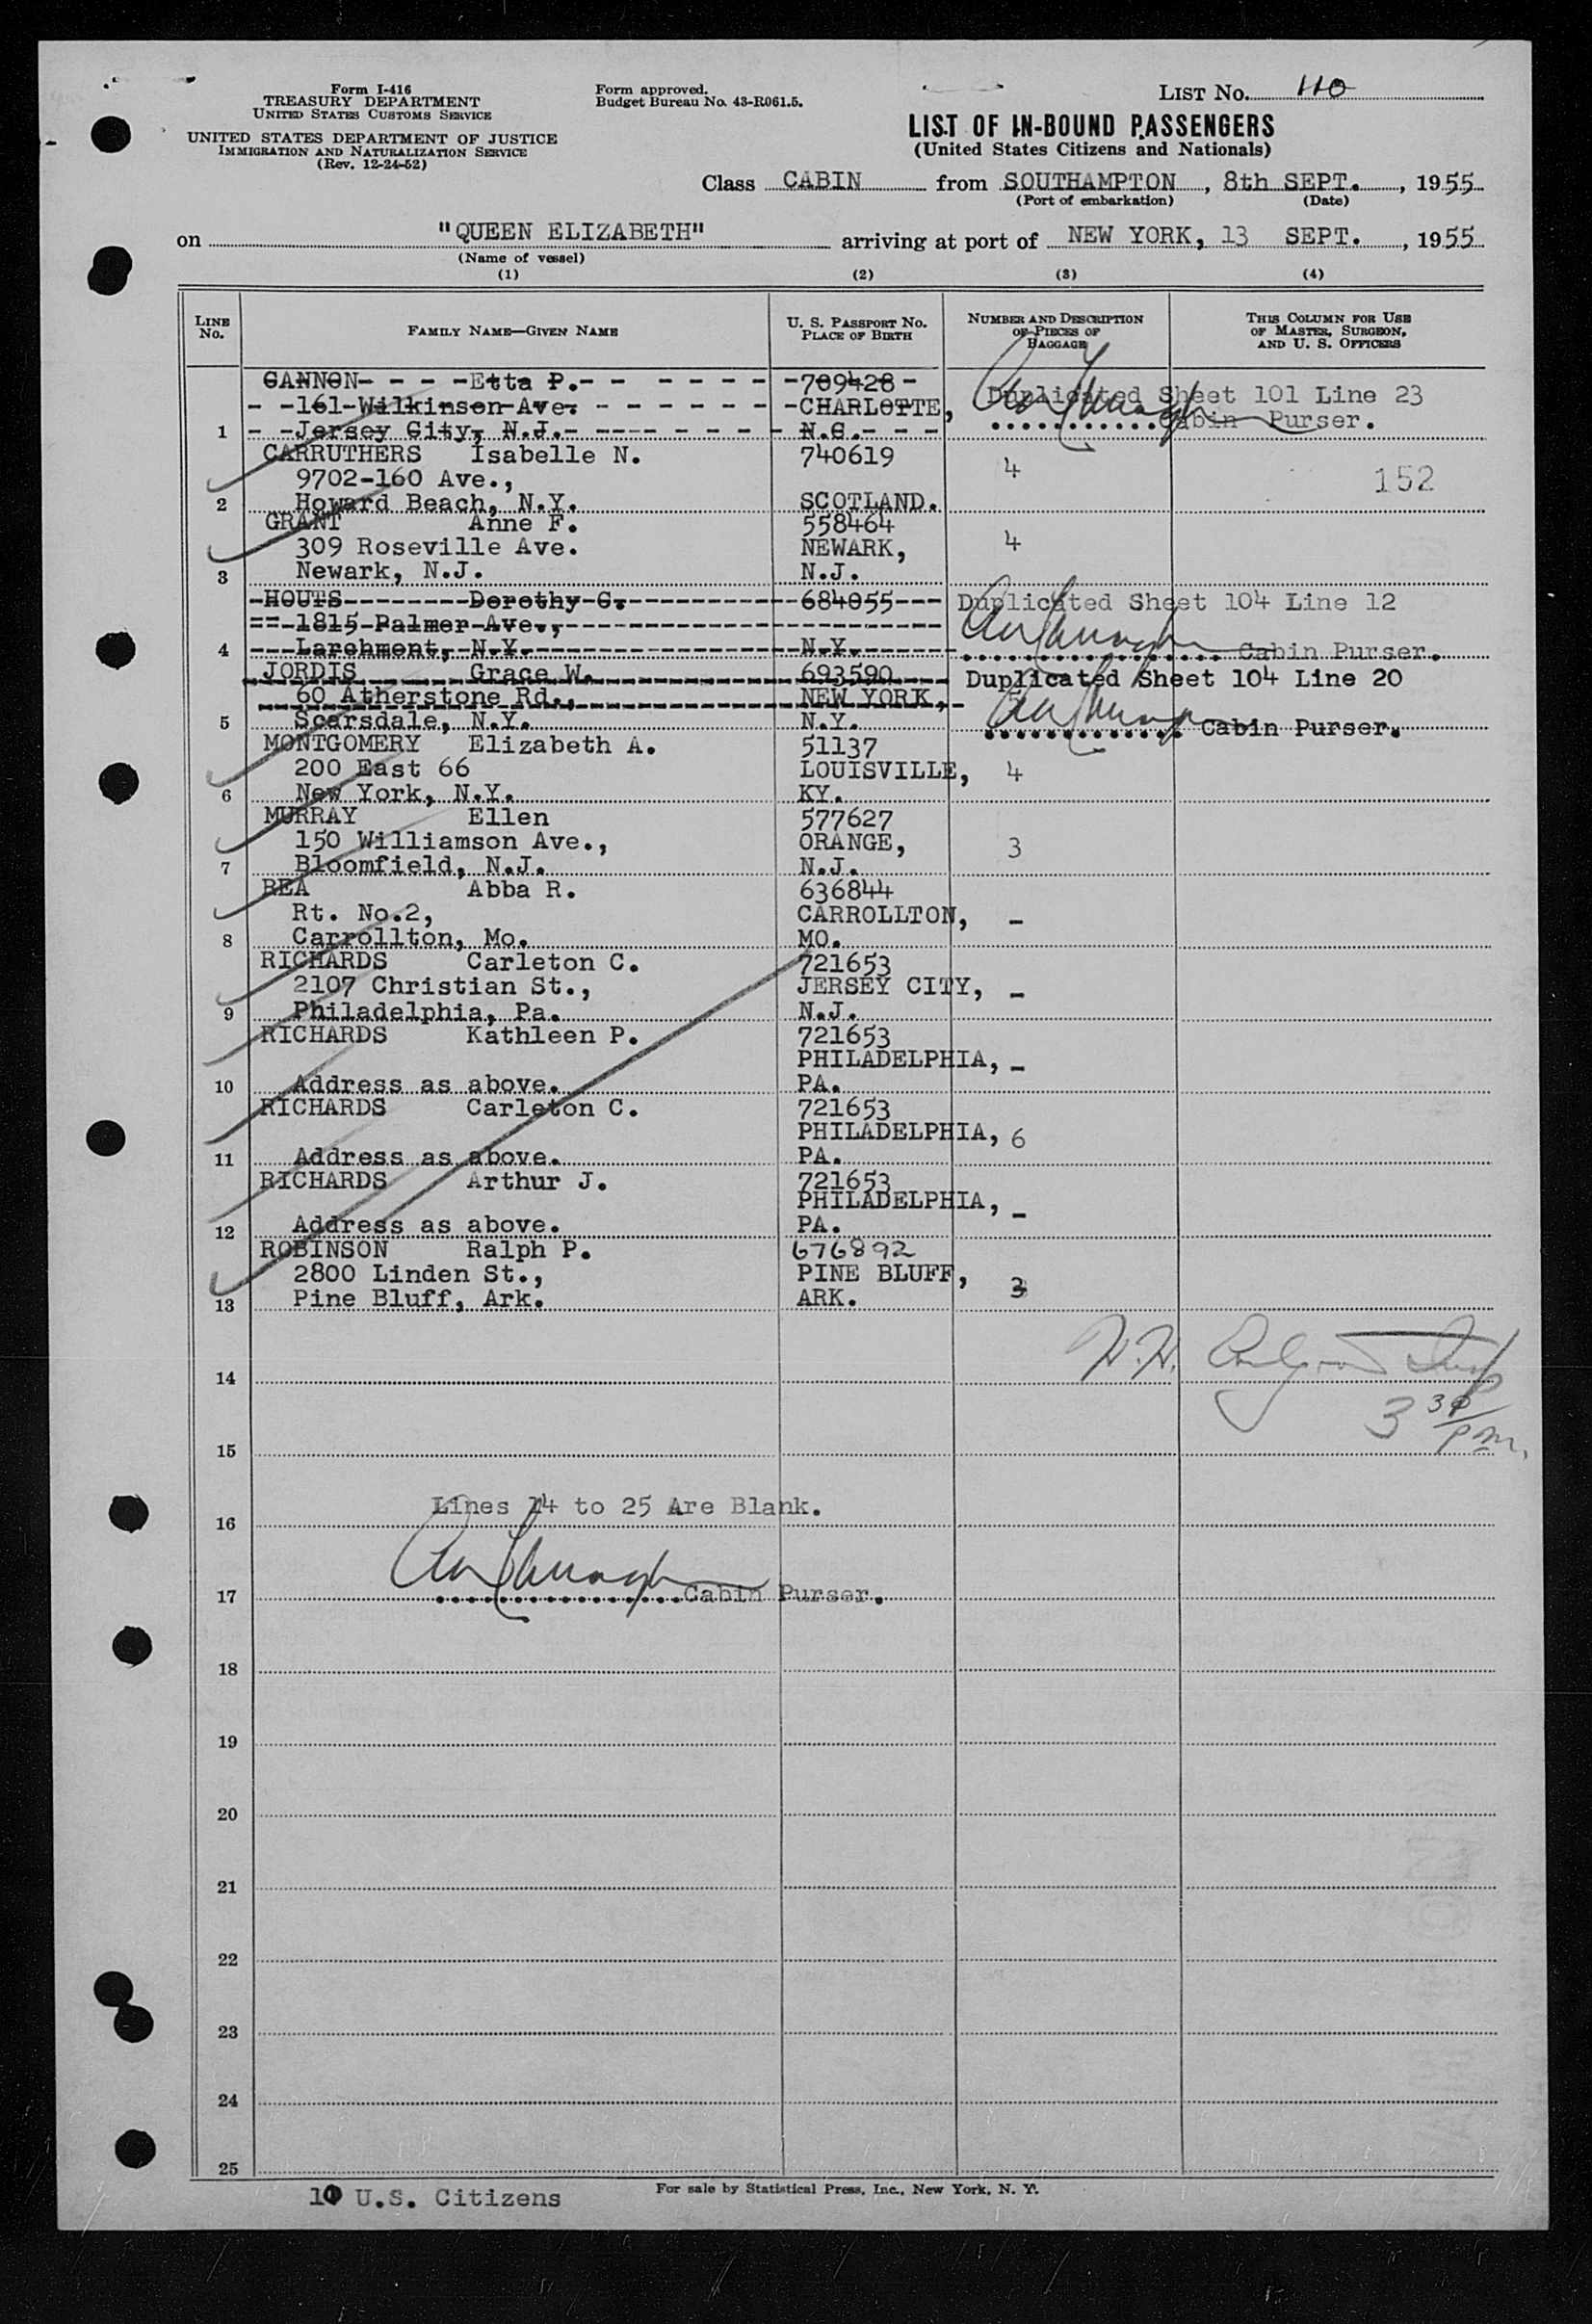 Form I-416
TREASURY DEPARTMENT
UNITED STATES CUSTOMS SERVICE
UNITED STATES DEPARTMENT OF JUSTICE
IMMIGRATION AND NATURALIZATION SERVICE
(Rev. 12-24-52)
Form approved.
Budget Bureau No. 43-R061.5.
LIST No. 110
LIST OF IN-BOUND PASSENGERS
(United States Citizens and Nationals)
Class CABIN from SOUTHAMPTON, 8th SEPT., 1955
(Port of embarkation) (Date)
on "QUEEN ELIZABETH" arriving at port of NEW YORK, 13 SEPT., 1955
(Name of vessel)
(1) (2) (3) (4)
LINE No. FAMILY NAME—GIVEN NAME U. S. PASSPORT No. PLACE OF BIRTH NUMBER AND DESCRIPTION OF PIECES OF BAGGAGE THIS COLUMN FOR USE OF MASTER, SURGEON, AND U. S. OFFICERS
GANNON- - - - -Etta P.- - - - - - - -709428 -
Duplicated Sheet 101 Line 23
- -161-Wilkinson-Ave. - - - - - - - -CHARLOTTE,
Cabin Purser.
1 - -Jersey City, N.J.- - - - - - - - - N.C.- - -
CARRUTHERS Isabelle N. 740619 4
9702-160 Ave., 152
2 Howard Beach, N.Y. SCOTLAND.
GRANT Anne F. 558464
309 Roseville Ave. NEWARK, 4
3 Newark, N.J. N.J.
-HOUTS--------Dorothy-G.------------684055--- Duplicated Sheet 104 Line 12
==-1815-Palmer-Ave.,-----------------------
4 ---Larchmont,-N.Y.------------------N.Y.------ Cabin Purser.
JORDIS Grace W. 693590 Duplicated Sheet 104 Line 20
60 Atherstone Rd., NEW YORK,
5 Scarsdale, N.Y. N.Y. Cabin Purser.
MONTGOMERY Elizabeth A. 51137
200 East 66 LOUISVILLE, 4
6 New York, N.Y. KY.
MURRAY Ellen 577627
150 Williamson Ave., ORANGE, 3
7 Bloomfield, N.J. N.J.
REA Abba R. 636844
Rt. No.2, CARROLLTON, -
8 Carrollton, Mo. MO.
RICHARDS Carleton C. 721653
2107 Christian St., JERSEY CITY, -
9 Philadelphia, Pa. N.J.
RICHARDS Kathleen P. 721653
PHILADELPHIA, -
10 Address as above. PA.
RICHARDS Carleton C. 721653
PHILADELPHIA, 6
11 Address as above. PA.
RICHARDS Arthur J. 721653
PHILADELPHIA, -
12 Address as above. PA.
ROBINSON Ralph P. 676892
2800 Linden St., PINE BLUFF, 3
13 Pine Bluff, Ark. ARK.
14
3 30 pm.
15
Lines 14 to 25 Are Blank.
16
17 Cabin Purser.
18
19
20
21
22
23
24
25
10 U.S. Citizens
For sale by Statistical Press, Inc., New York, N. Y.